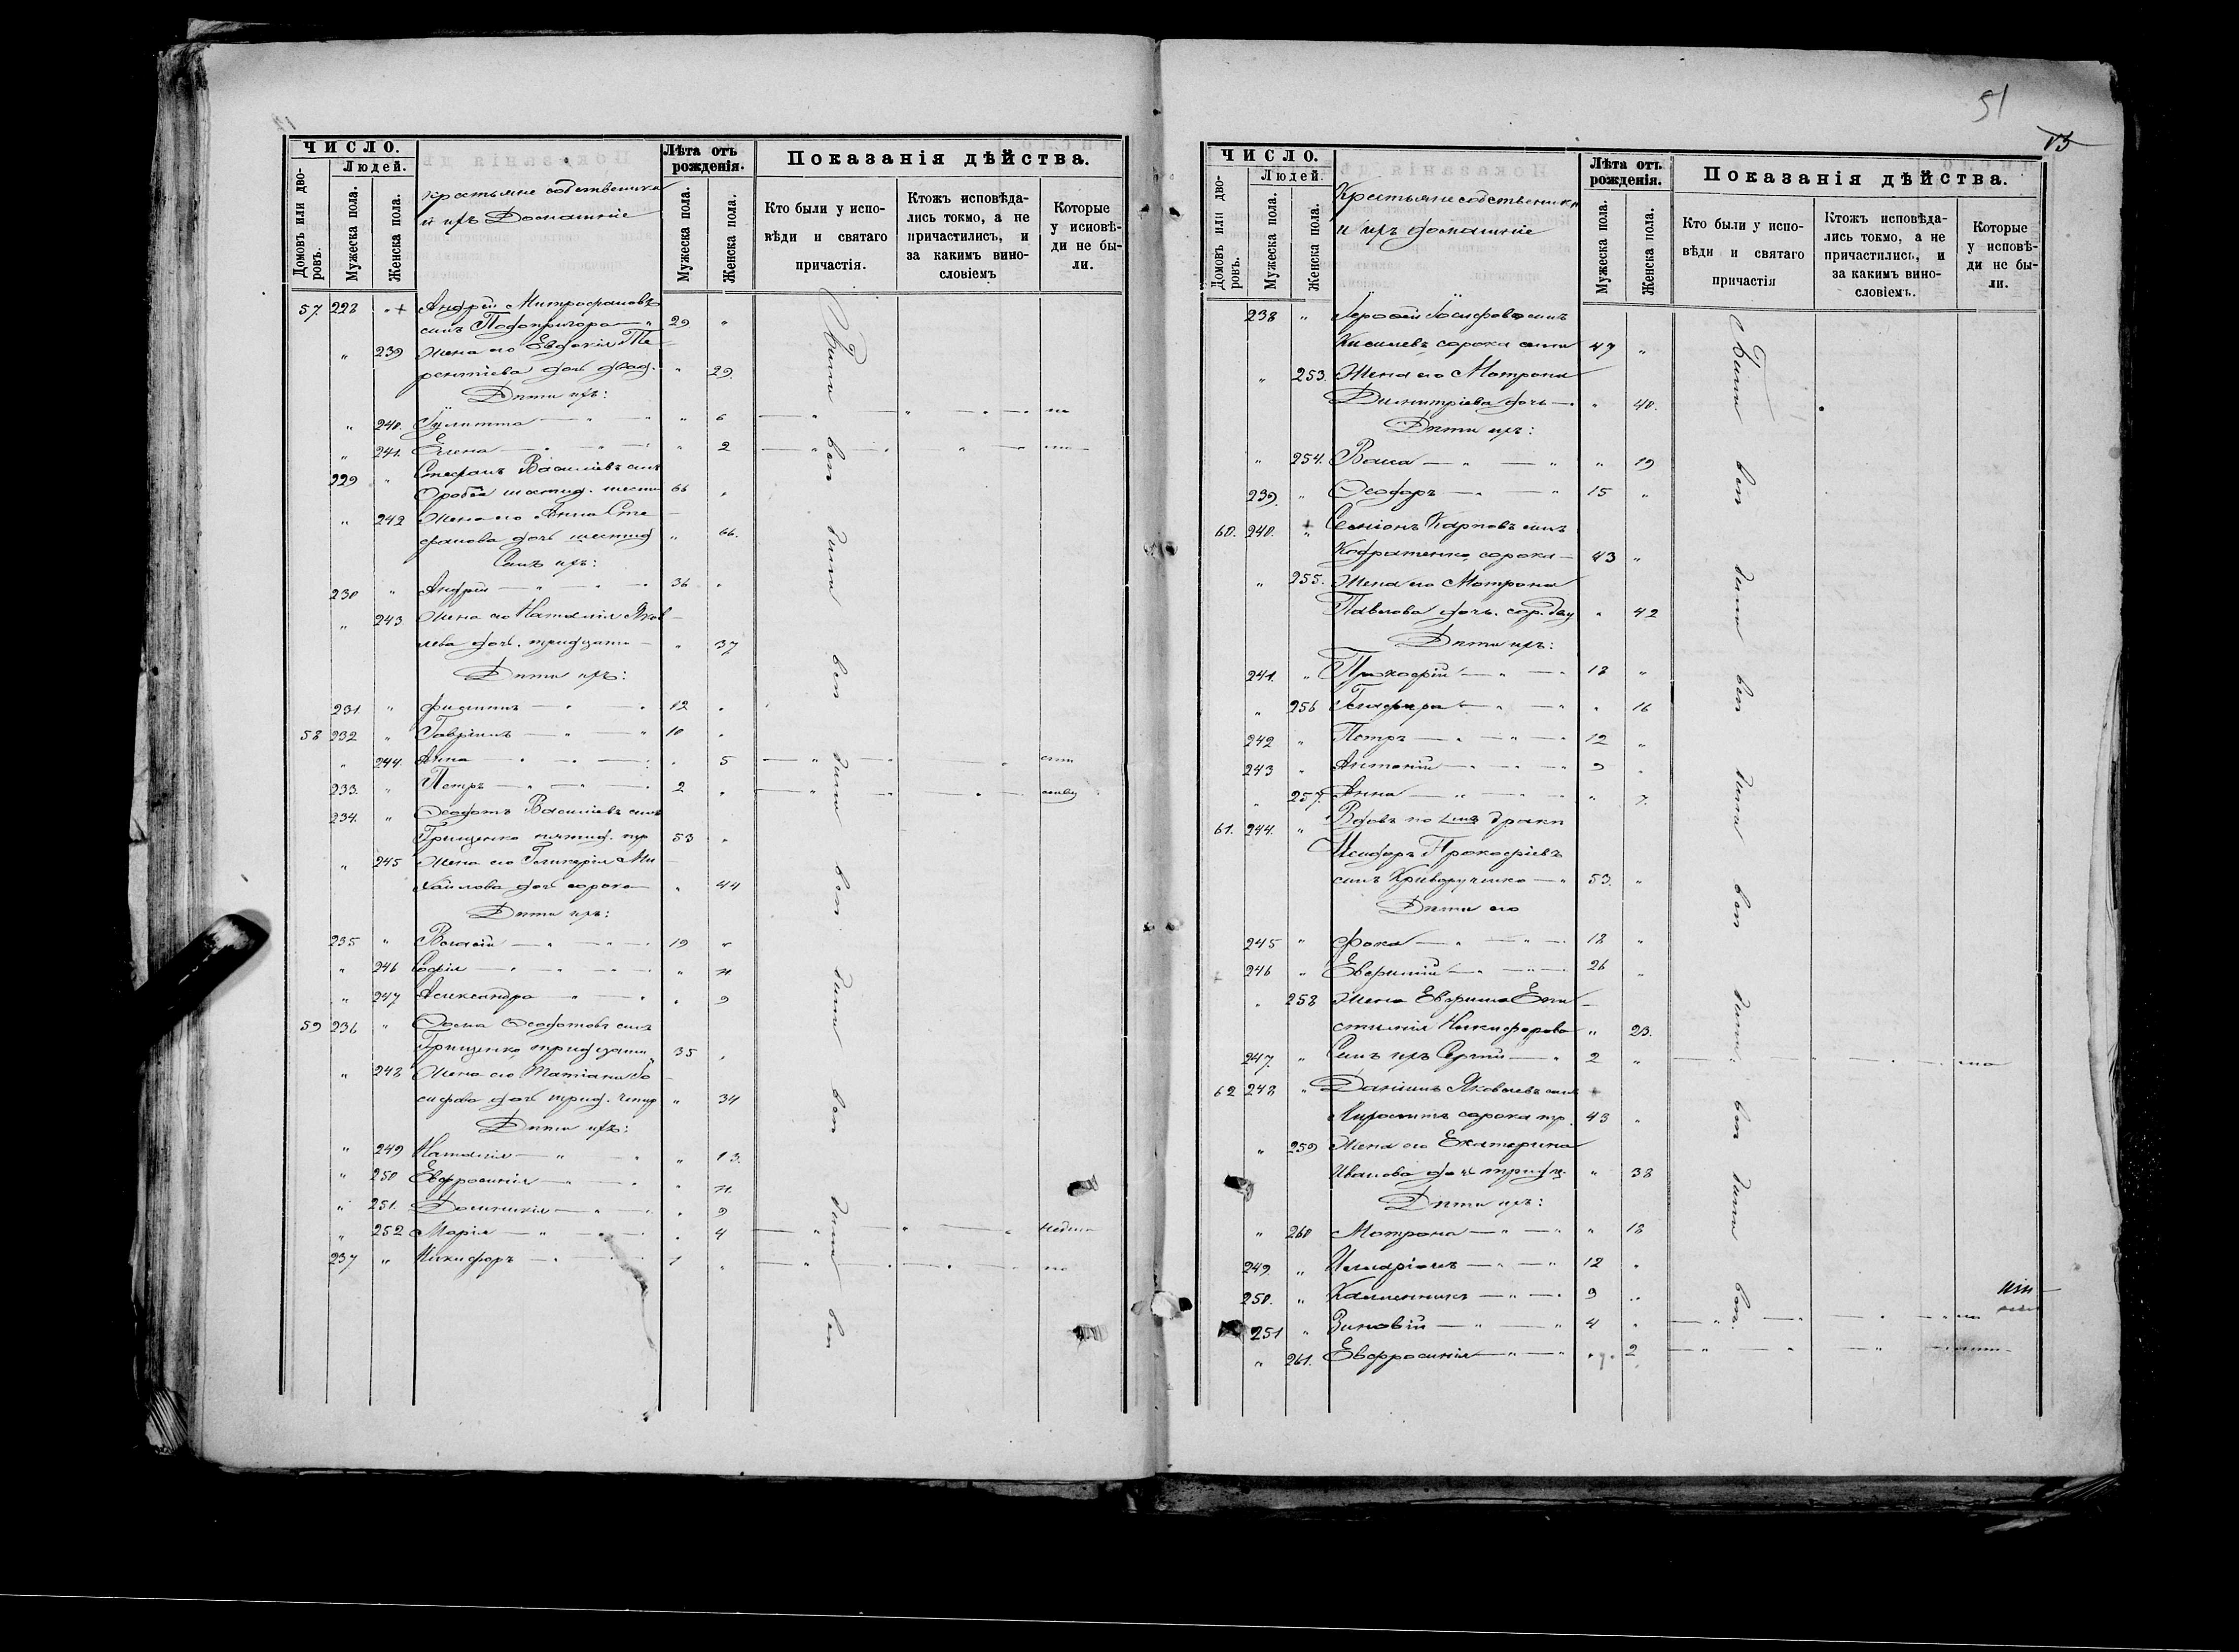 ЧИСЛО.
Людей.
Домовъ или дворовъ.
Мужеска пола.
Женска пола.
Крестьяне собственики
и ихъ Домашніе
Лѣта отъ рожденія.
Мужеска пола.
Женска пола.
Показанія дѣйства.
Кто были у исповѣди и святаго причастія.
Ктожъ исповѣдались токмо, а не причастились, и за какимъ винословіемъ
Которые у исповѣди не были.
57 228 " + Андрей Митрофановъ
сынъ 29 "
" 239 Жена его Евдокія Те
рентіева доч. двад. " 29.
Дѣти ихъ:
" 240. Іулитта " 6
" 241. Елена " 2
229 " Стефанъ Василіевъ сынъ
66 "
" 242 Жена его Анна Сте
фанова доч. шестид " 66.
Сынъ ихъ:
230 " Андрей 36 "
" 243 Жена его Наталія Яков
лева доч. тридцати " 37
Дѣти ихъ:
231 " Филиппъ 12 "
58 232 " Гавріилъ 10 "
" 244. Анна " 5
233. " Петръ 2 "
234. " Ѳеодотъ Василіевъ сынъ
Грищенко пятид. тр 53 "
" 245 Жена его Гликерія Ми
хайлова доч. сорока " 44
Дѣти ихъ:
235 " Власій 19 "
" 246 Софія " 11
" 247 Александра " 9
59 236 " Ѳома Ѳеодотовъ сынъ
Грищенко тридцати 35 "
" 248 Жена его Татіана Іо
сифова доч. трид. четыр " 34
Дѣти ихъ:
" 249 Наталія " 13.
" 250 Евфросинія " 11.
" 251. Домникія " 9
" 252 Марія " 4
237 " Никифоръ 1 "
Были были были были были
51
ЧИСЛО.
Людей.
Домовъ или дворовъ.
Мужеска пола.
Женска пола.
Крестьяне собственики
и ихъ домашніе
Лѣта отъ рожденія.
Мужеска пола.
Женска пола.
Показанія дѣйства.
Кто были у исповѣди и святаго причастія
Ктожъ исповѣдались токмо, а не причастились, и за какимъ винословіемъ.
Которые у исповѣди не были.
238 " Іосифовъ сынъ
Киселевъ сорока семи 47 "
" 253. Жена его Матрона
Димитріева дочь " 40.
Дѣти ихъ:
" 254. " 19
239. " Ѳеодоръ 15 "
60. 240. + Семіонъ Карповъ сынъ
Кодратенко сорока 43 "
" 255. Жена его Матрона
Павлова доч. сор. два " 42
Дѣти ихъ:
241. " Прокофій 18 "
" 256 Гликерія " 16
242 " Петръ 12 "
243 " Антоній 9 "
" 257. Анна " 7.
61. 244. " Вдовъ по бракѣ
Исидоръ Прокофіевъ
сынъ Криворученко 53. "
Дѣти его
245 " Фока 18 "
246 " Евфимій 26 "
" 258 Жена Евфима Епи
стимія Никифорова " 23.
247. " Сынъ ихъ Сергій 2 "
62 248 " Даніилъ Яковлевъ сынъ
сорока тр. 43 "
" 259 Жена его Екатерина
Иванова доч. тридц. " 38
Дѣти ихъ:
" 260 Матрона " 18
249. " Иларіонъ 12 "
250. " Каллиникъ 9 "
251 " Зиновій 4 "
" 261. Евфросинія " 2
Были были были были были